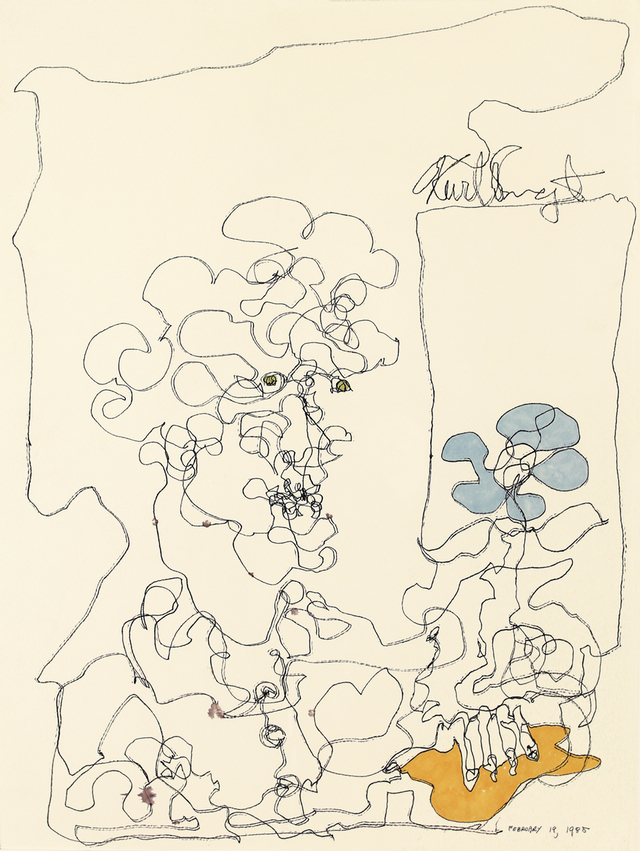 Kurt Vonnegut
FEBRUARY 19, 1985